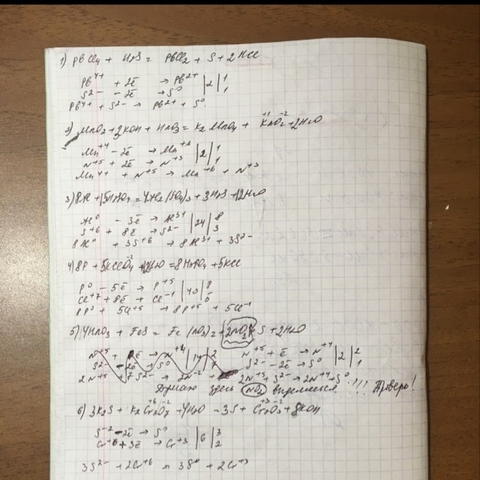 1) PbCl4 + H2S = PbCl2 + S + 2HCl
Pb4+ + 2ē → Pb2+ |2| 1
S2- - 2ē → S0 1
Pb4+ + S2- → Pb2+ + S0
2) MnO2 + 2KOH + KNO3 = K2MnO4 + KNO2 + H2O
Mn+4 - 2ē → Mn+6 |2| 1
N+5 + 2ē → N+3 1
Mn+4 + N+5 → Mn+6 + N+3
3) 8Al + 15H2SO4 = 4Al2(SO4)3 + 3H2S + 12H2O
Al0 - 3ē → Al3+ |24| 8
S+6 + 8ē → S2- 3
8Al0 + 3S+6 → 8Al3+ + 3S2-
4) 8P + 5KClO4 + 12H2O = 8H3PO4 + 5KCl
P0 - 5ē → P+5 |40| 8
Cl+7 + 8ē → Cl-1 5
8P0 + 5Cl+7 → 8P+5 + 5Cl-1
5) 4HNO3 + FeS = Fe(NO3)2 + 2NO2 + S + 2H2O
N+5 + ē → N+4 |2| 2
S2- - 2ē → S0 1
2N+5 + S2- → 2N+4 + S0
Думаю здесь NO2 выделяется!!!!
6) 3K2S + K2Cr2O7 + H2O → 3S + Cr2O3 + 8KOH
S-2 - 2ē → S0 |6| 3
Cr+6 + 3ē → Cr+3 2
3S2- + 2Cr+6 = 3S0 + 2Cr+3